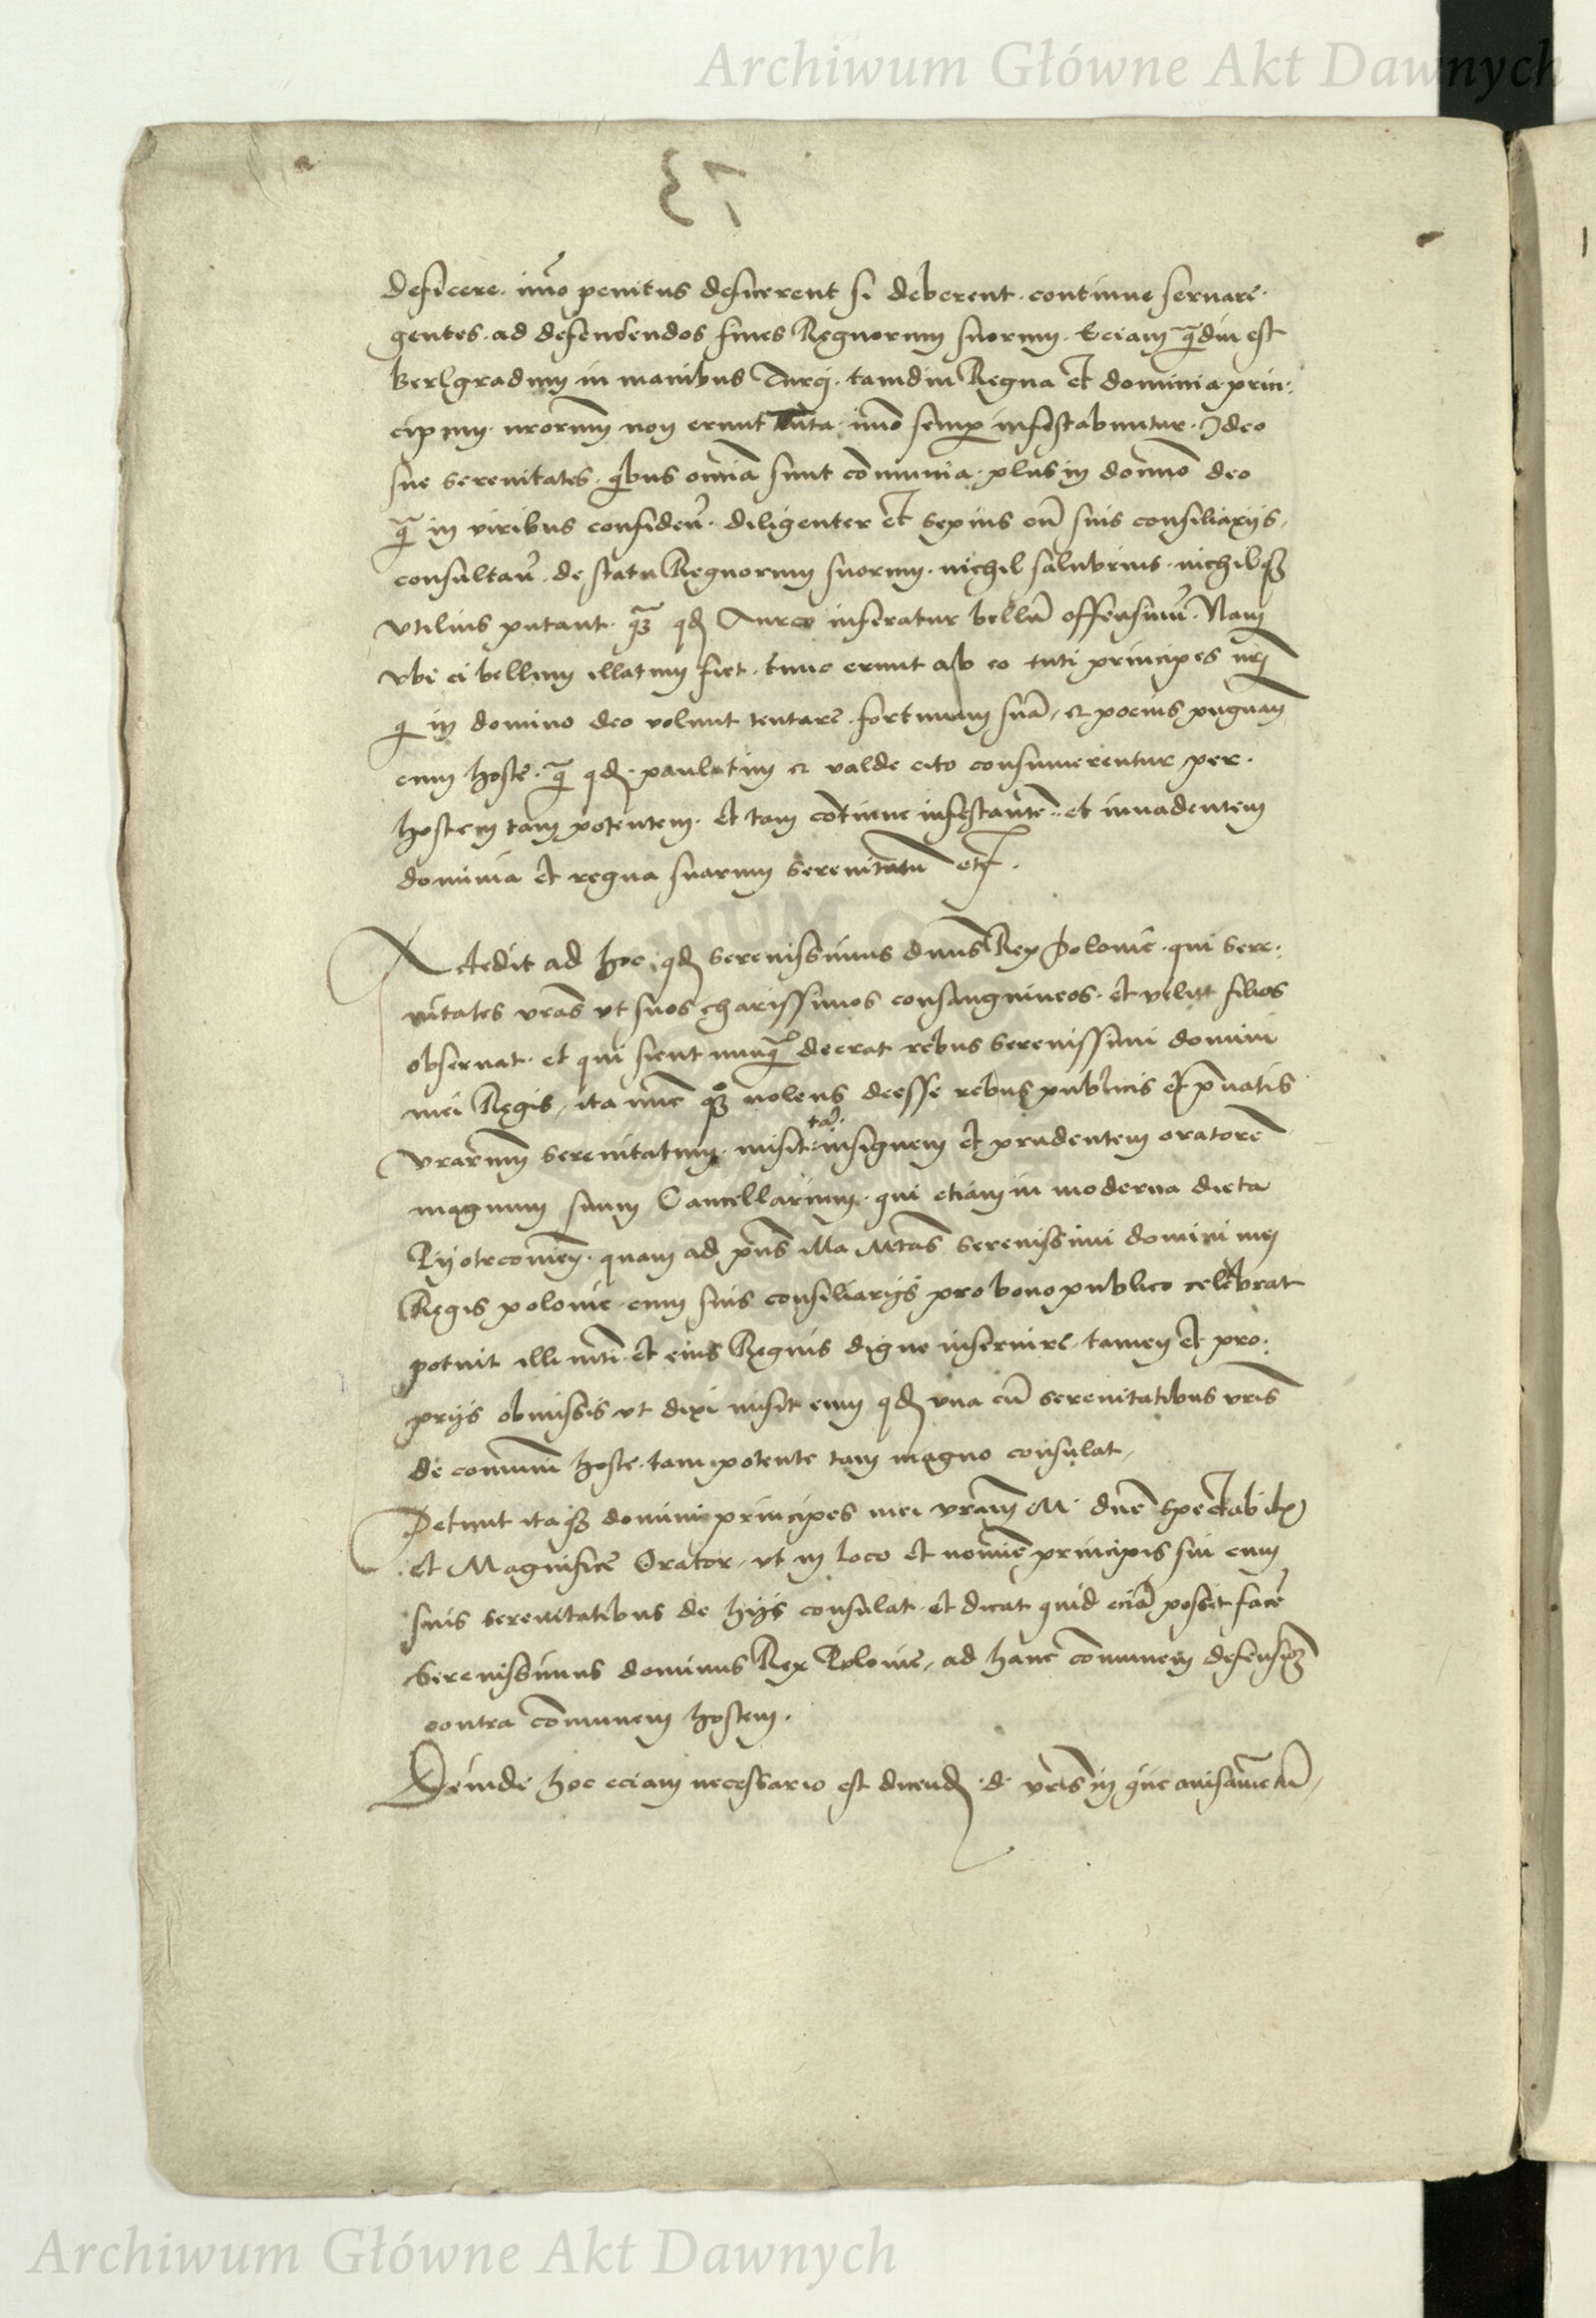 Archiwum Główne Akt Dawnych
deficere. imo penitus deficerent si deberent. continue servare.
gentes. ad defendendos fines Regnorum suorum. Eciam q̄diu est
Berlgradum in manibus Turci. tamdiu Regna et dominia prin:
cipum. nrorum̄ non erunt tuta. imo semp infestabuntur. Ideo
sue serenitates. qibus omnia sunt comunia. plus in domino deo
q̄ in viribus confiden̄. diligenter et sepius cū suis consiliarijs.
consultan̄. de statu Regnorum suorum. nichil salubrius. nichilqʒ
utilius putant. qʒ qd Turco inferatur bellū offensivū. Nam
vbi ei bellum illatum fiet. tunc erunt ab eo tuti principes nri
qi in domino deo volunt tentare. fortunam suā, et pocius pugnam
cum hoste. q̄ qd. paulatim et valde cito consumerentur per.
hostem tam potentem. et tam cōtinue infestantē. et invadentem
dominia et regna suarum serenitatū etc.
Accedit ad hoc, qd serenissimus dnus Rex Polonie. qui sere:
nitates vras ut suos charissimos consanguineos. et velut filios
observat. et qui sicut nunq̄ deerat rebus serenissimi domini
mei Regis, ita nunc qoqʒ nolens deesse rebus publicis et privatis
vrarum serenitatum. misit tā insignem et prudentem oratorē
magnum suum Cancellarium. qui etiam in moderna dieta
Pijotrcovien̄. quam ad pn̄s illa Mtas serenissimi domini mei
Regis polonie. cum suis consiliarijs pro bono publico celebrat
potuit illi mti. et eius Regnis digne inservire, tamen et pro:
prijs obmissis ut dixi misit eum qd una cū serenitatibus vris
de comuni hoste. tam potente tam magno consulat,
Petunt itaqʒ domini principes mei vram M. dne spectabilis
et Magnifice Orator, ut in loco et nomine principis sui cum
suis serenitatibus de hijs consulat. et dicat quid eciā possit facē
Serenissimus dominus Rex Polonie, ad hanc comunem defensionē
contra comunem hostem.
Deinde hoc eciam necessario est dicend. d. vris in que avisamentū,
Archiwum Główne Akt Dawnych